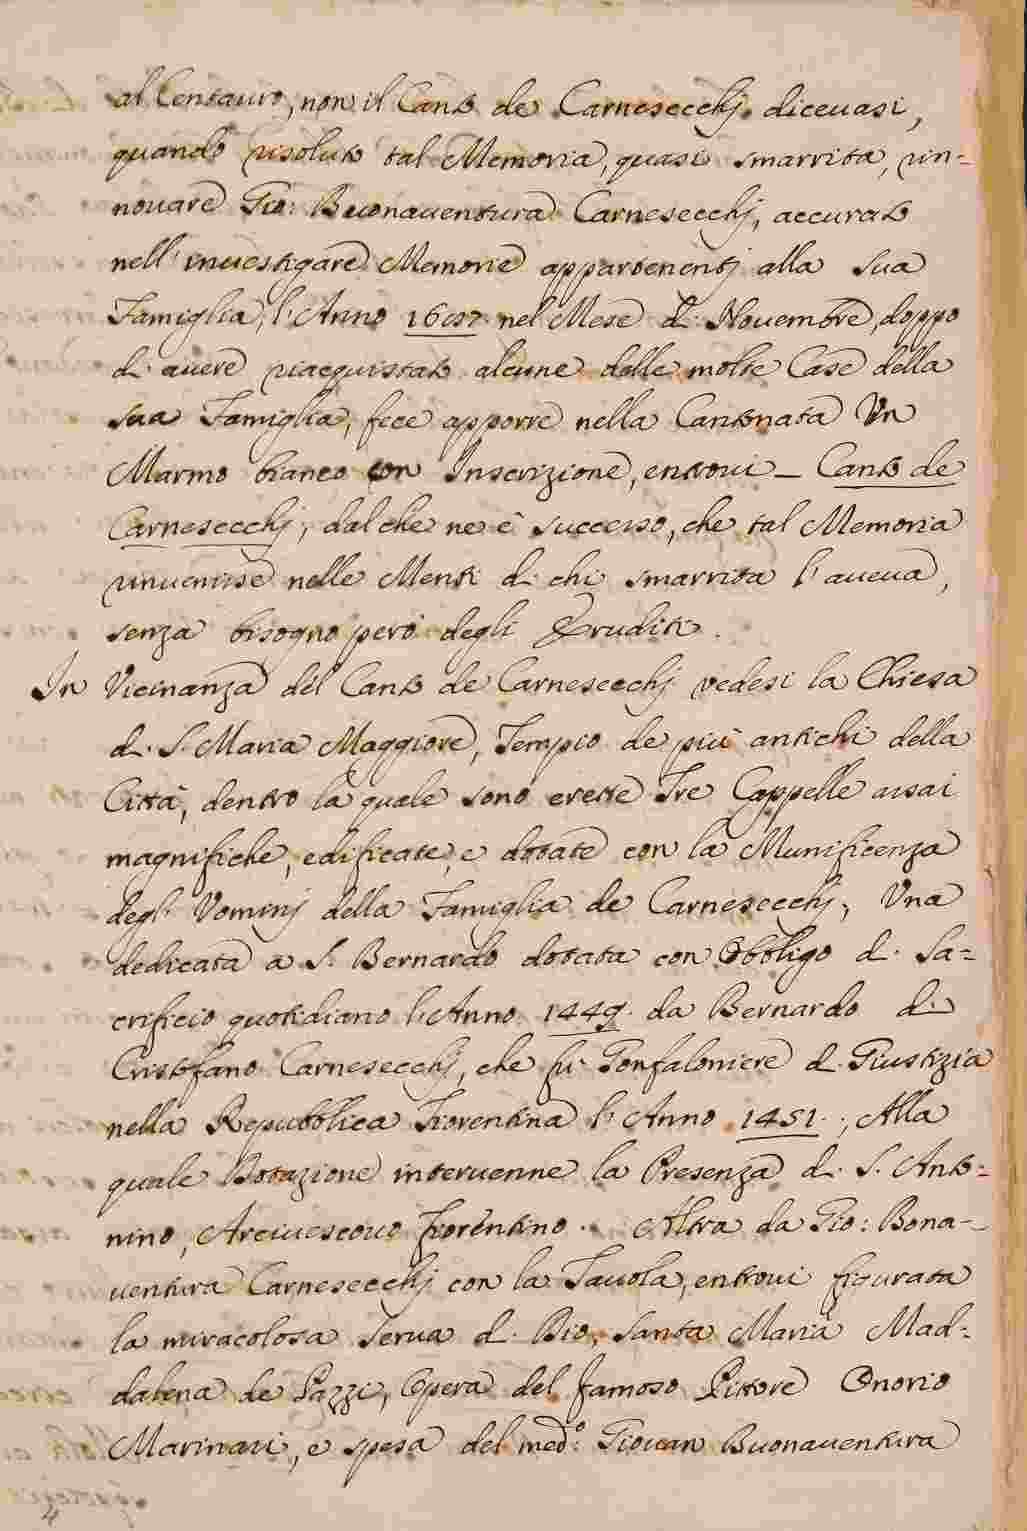 al Centauro, non il Canto de Carnesecchj diceuasi,
quando risoluto tal Memoria, quasi smarrita, rin=
nouare Gio: Buonauentura Carnesecchj, accurato
nell' inuestigare Memorie appartenentj alla sua
Famiglia, l'Anno 1697 nel Mese di Nouembre, doppo
di auere riacquistato alcune delle molte Case della
sua Famiglia, fece apporre nella Cantonata Vn
Marmo bianco con Inscrizione, entroui – Canto de
Carnesecchj, dal che ne è successo, che tal Memoria
rinuenisse nelle Menti di chi smarrita l'aueua,
senza bisogno però degli Eruditi.
In Vicinanza del Canto de Carnesecchj vedesi la Chiesa
di S. Maria Maggiore, Tempio de più antichi della
Città, dentro la quale sono erette Tre Cappelle assai
magnifiche, edificate, e dotate con la Munificenza
degl' Vominj della Famiglia de Carnesecchj, Vna
dedicata a S. Bernardo dotata con Obbligo di Sa=
crificio quotidiano l'Anno 1449. da Bernardo di
Cristofano Carnesecchj, che fù Gonfaloniere di Giustizia
nella Repubblica Fiorentina l'Anno 1451.; Alla
quale Dotazione interuenne la Presenza di S. Anto=
nino, Arciuescouo Fiorentino. Altra da Gio: Bona=
uentura Carnesecchj con la Tauola, entroui figurata
la miracolosa Serua di Dio, Santa Maria Mad=
dalena de Pazzi, Opera del famoso Pittore Onorio
Marinari, e spesa del med.º Giouan Buonauentura